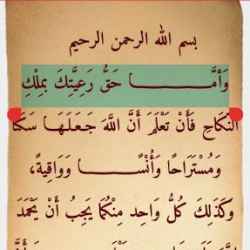 بسم الله الرحمن الرحيم
وَأَمَّا حَقُّ رَعِيَّتِكَ بِمِلْكِ
النِّكَاحِ فَأَنْ تَعْلَمَ أَنَّ اللَّهَ جَعَلَهَا سَكَنًا
وَمُسْتَرَاحًا وَأُنْسًا وَوَاقِيَةً،
وَكَذَلِكَ كُلُّ وَاحِدٍ مِنْكُمَا يَجِبُ أَنْ يَحْمَدَ